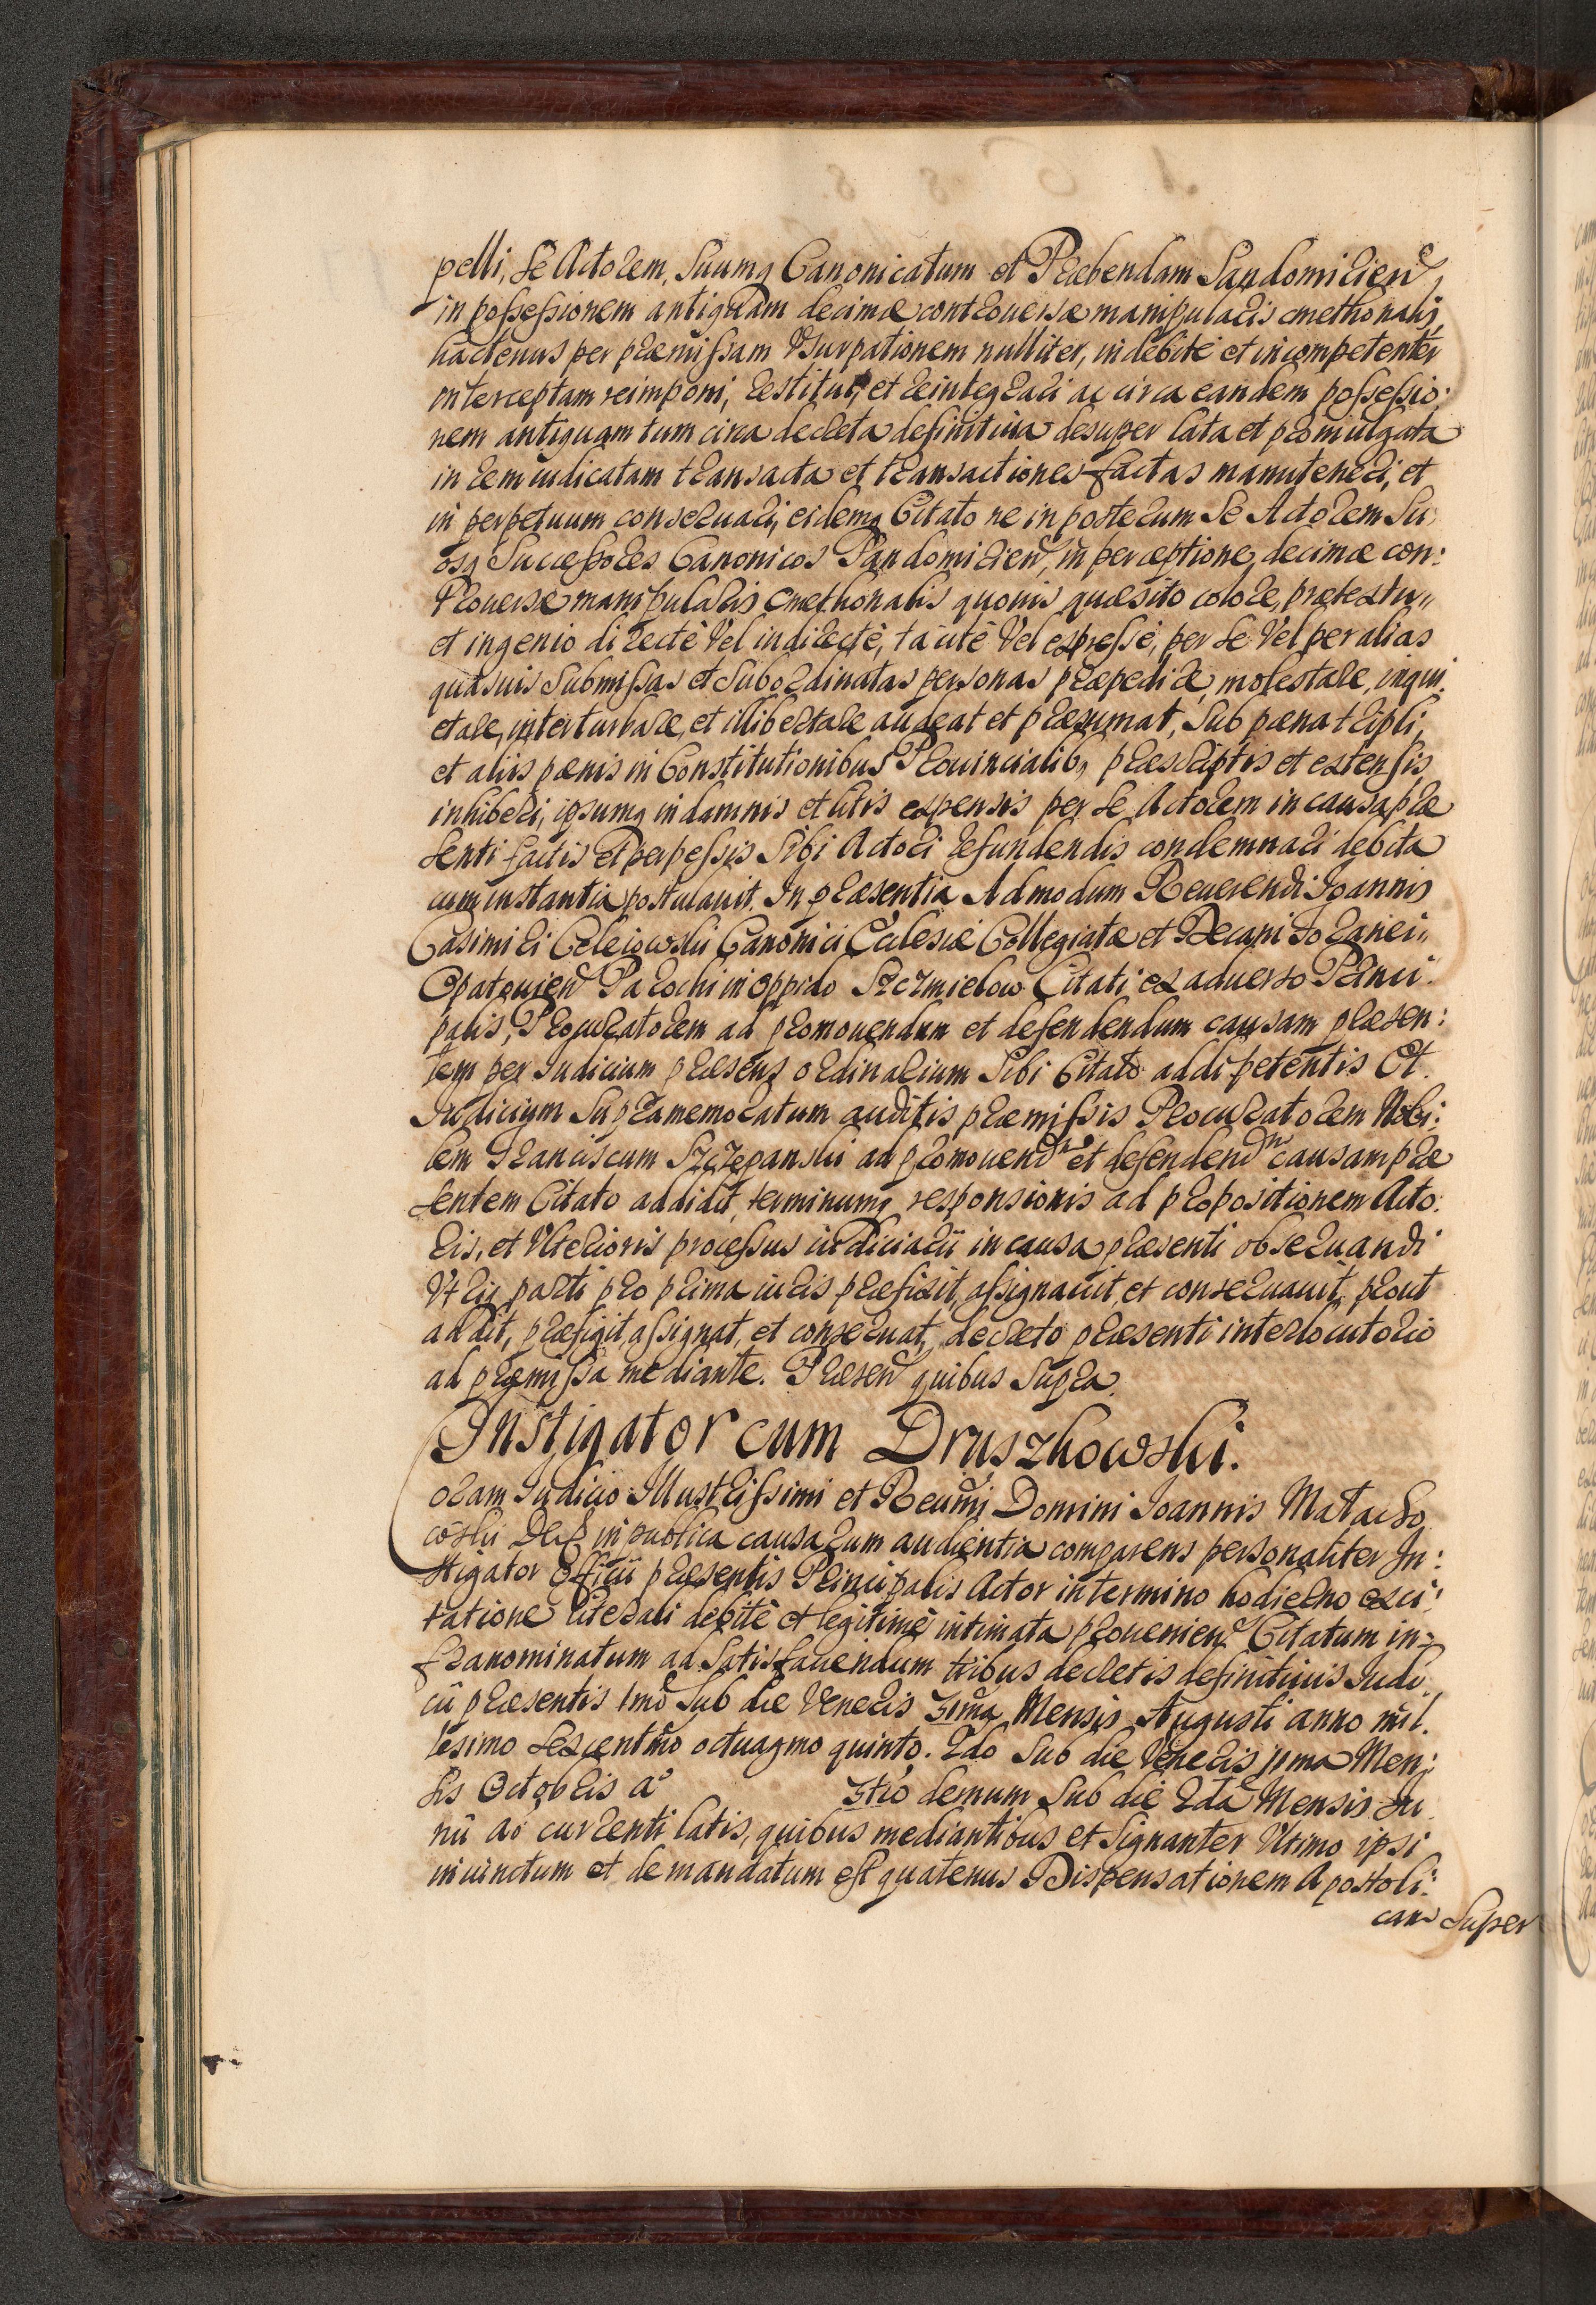 pelli, Se Actorem, Suumq Canonicatum et Præbendam Sandomirien
in possessionem antiquam decimæ controuersæ manipularis cmethonalis,
hactenus per præmissam Vsurpationem nulliter, indebité et incompetenter
interceptam reimponi, restitui, et reintegrari ac circa eandem possessio:
nem antiquam tum circa decreta definitiua desuper lata et promulgata
in rem iudicatam transacta et transactiones factas manuteneri, et
in perpetuum conseruari, eidemq Citato ne in posterum Se Actorem Su
osq Successores Canonicos Sandomirien, in perceptione decimæ con:
trouersæ manipularis cmethonalis quouis quæsito colore, prætextu„
et ingenio directé Vel indirecté, tacité Vel expressé, per se Vel per alias
quasuis Submissas et Subordinatas personas præpedire, molestare, inqui
etare, interturbare, et illibertare audeat et præsumat, Sub pæna tripli,
et alijs pænis in Constitutionibus Prouincialib, præscriptis et extensis
inhiberi, ipsumq in damnis et litis expensis per Se Actorem in causa præ
senti factis et perpessis Sibi Actori refundendis condemnari debita
cum instantia postulauit. In præsentia Admodum Reuerendi Joannis
Casimiri Celeiowski Canonici Ecclesiæ Collegiatæ et Decani foranei„
Opatouien Parochi in oppido Szczmielow Citati ex aduerso Princi:
palis, Procuratorem ad promouendum et defendendum causam præsen:
tem per Iudicium præsens ordinarium Sibi Citato addi petentis Et.
Iudicium Supramemoratum auditis præmissis Procuratorem Nobi:
lem Franciscum Szczepanski ad promouend et defendend causam præ
sentem Citato addidit, terminumq responsionis ad propositionem Acto:
ris, et Vlterioris processus iudiciarij in causa præsenti obseruandi
Vtriq parti pro prima iuris præfixit, assignauit, et conseruauit, prout
addit, præfigit, assignat, et conseruat, decreto præsenti interlocutorio
ad præmissa mediante. Præsen quibus Supra.
Instigator cum Druszkowski.
Coram Iudicio Illustrissimi et Reudmi Domini Joannis Matacho
coski Deß in publica causarum audientia comparens personaliter In:
stigator Officij præsentis Principalis Actor in termino hodierno ex ci:
tatione literali debitè et legitimè intimata prouenien Citatum in:
franominatum ad Satisfaciendum tribus decretis definitiuis Iudi:
cij præsentis 1mo Sub die Veneris 31ma Mensis Augusti anno mil.
lesimo Sexcentmo octuagmo quinto. 2do Sub die Veneris 11ma Men:
sis Octobris ao 3tio demum Sub die 2da Mensis Iu
nij ao currenti latis, quibus mediantibus et Signanter Vltimo ipsi
iniunctum et demandatum est quatenus Dispensationem Apostoli:
cam Super